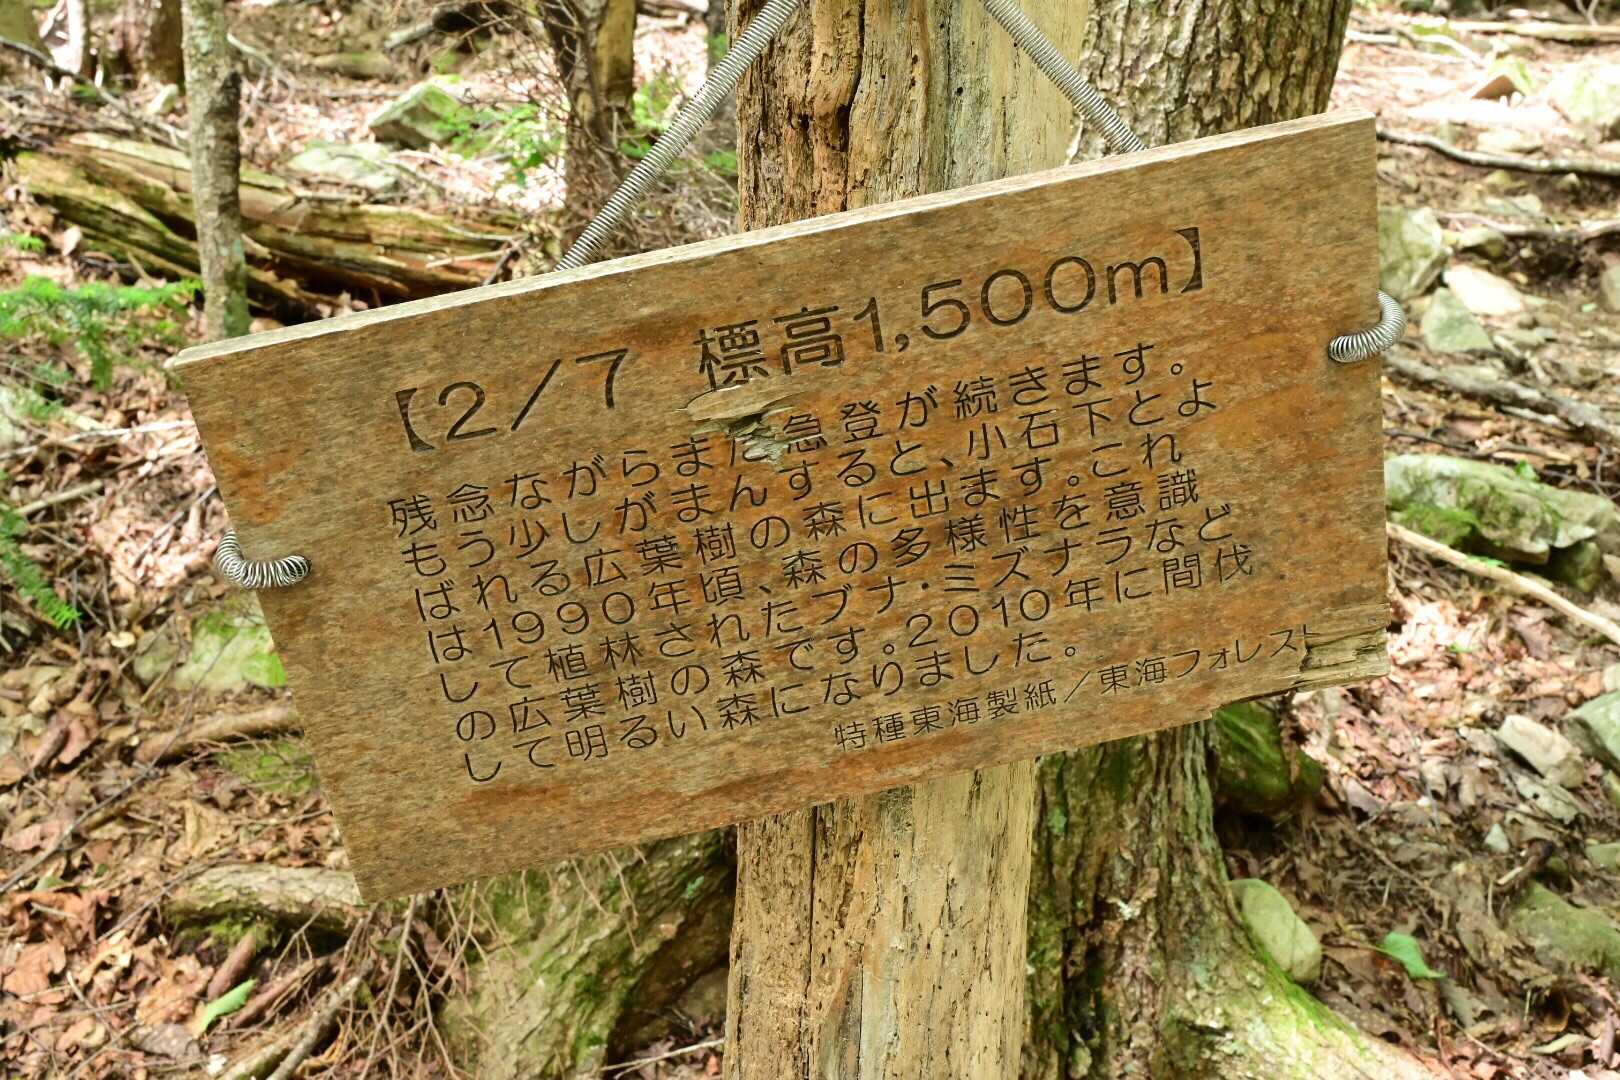 【2/7 標高1,500m】
残念ながらまだ急登が続きます。
もう少しがまんすると、小石下とよ
ばれる広葉樹の森に出ます。これ
は1990年頃、森の多様性を意識
して植林されたブナ・ミズナラなど
の広葉樹の森です。2010年に間伐
して明るい森になりました。
特種東海製紙/東海フォレスト